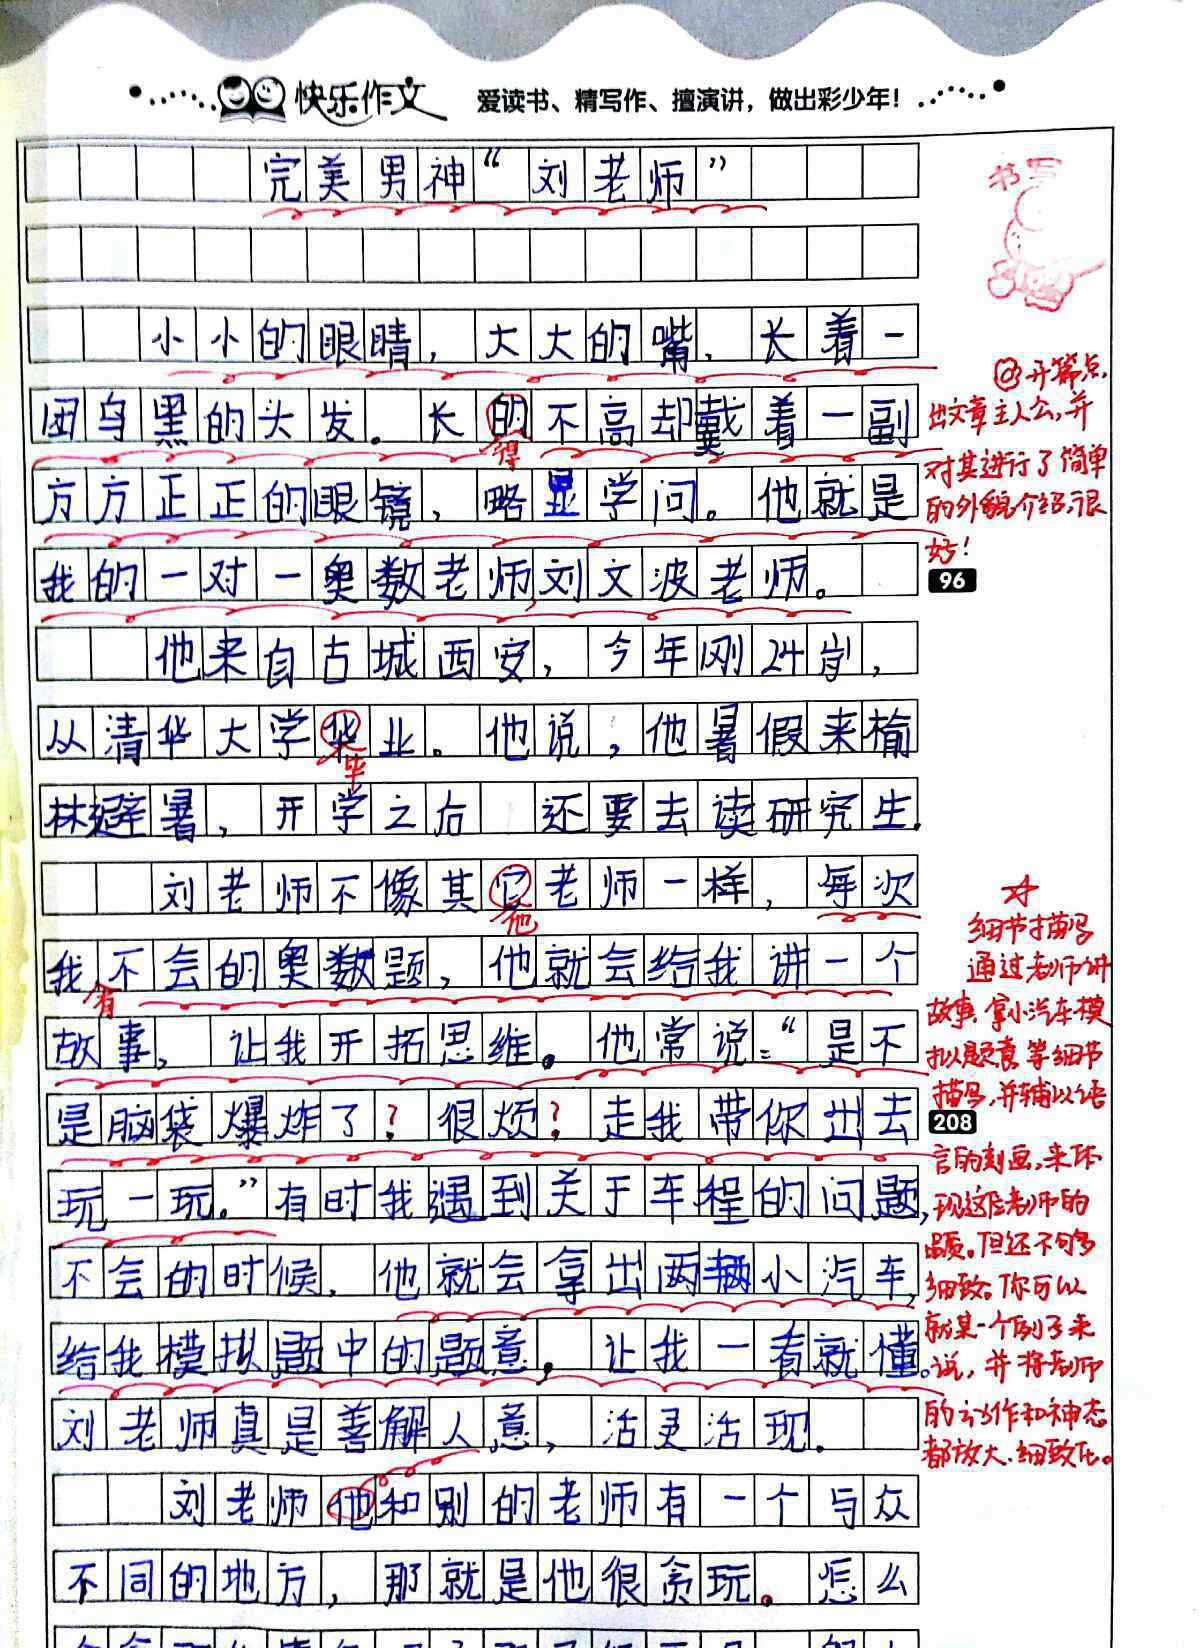 快乐作文 爱读书、精写作、擅演讲，做出彩少年！
完美男神“刘老师”
书写
小小的眼睛，大大的嘴，长着一
团乌黑的头发。长的不高却戴着一副
得
方方正正的眼镜，略显学问。他就是
我的一对一奥数老师,刘文波老师。
@开篇点
出文章主人公,并
对其进行了简单
的外貌介绍,很
好！
96
他来自古城西安，今年刚24岁，
从清华大学华业。他说，他暑假来榆
毕
林避暑，开学之后 还要去读研究生.
刘老师不像其它老师一样，每次
他
我不会的奥数题，他就会给我讲一个
有
故事，让我开拓思维。他常说：“是不
是脑袋爆炸了？很烦？走我带你出去
玩一玩。”有时我遇到关于车程的问题，
不会的时候，他就会拿出两辆小汽车，
给我模拟题中的题意，让我一看就懂。
刘老师真是善解人意，活灵活现.
☆
细节描写
通过老师讲
故事,拿小汽车模
拟题意等细节
描写,并辅以语
208
言的刻画,来体
现这位老师的
品质。但还不够
细致。你可以
就某一个例子来
说，并将老师
的动作和神态
都放大、细致化。
刘老师他和别的老师有一个与众
不同的地方，那就是他很贪玩。怎么